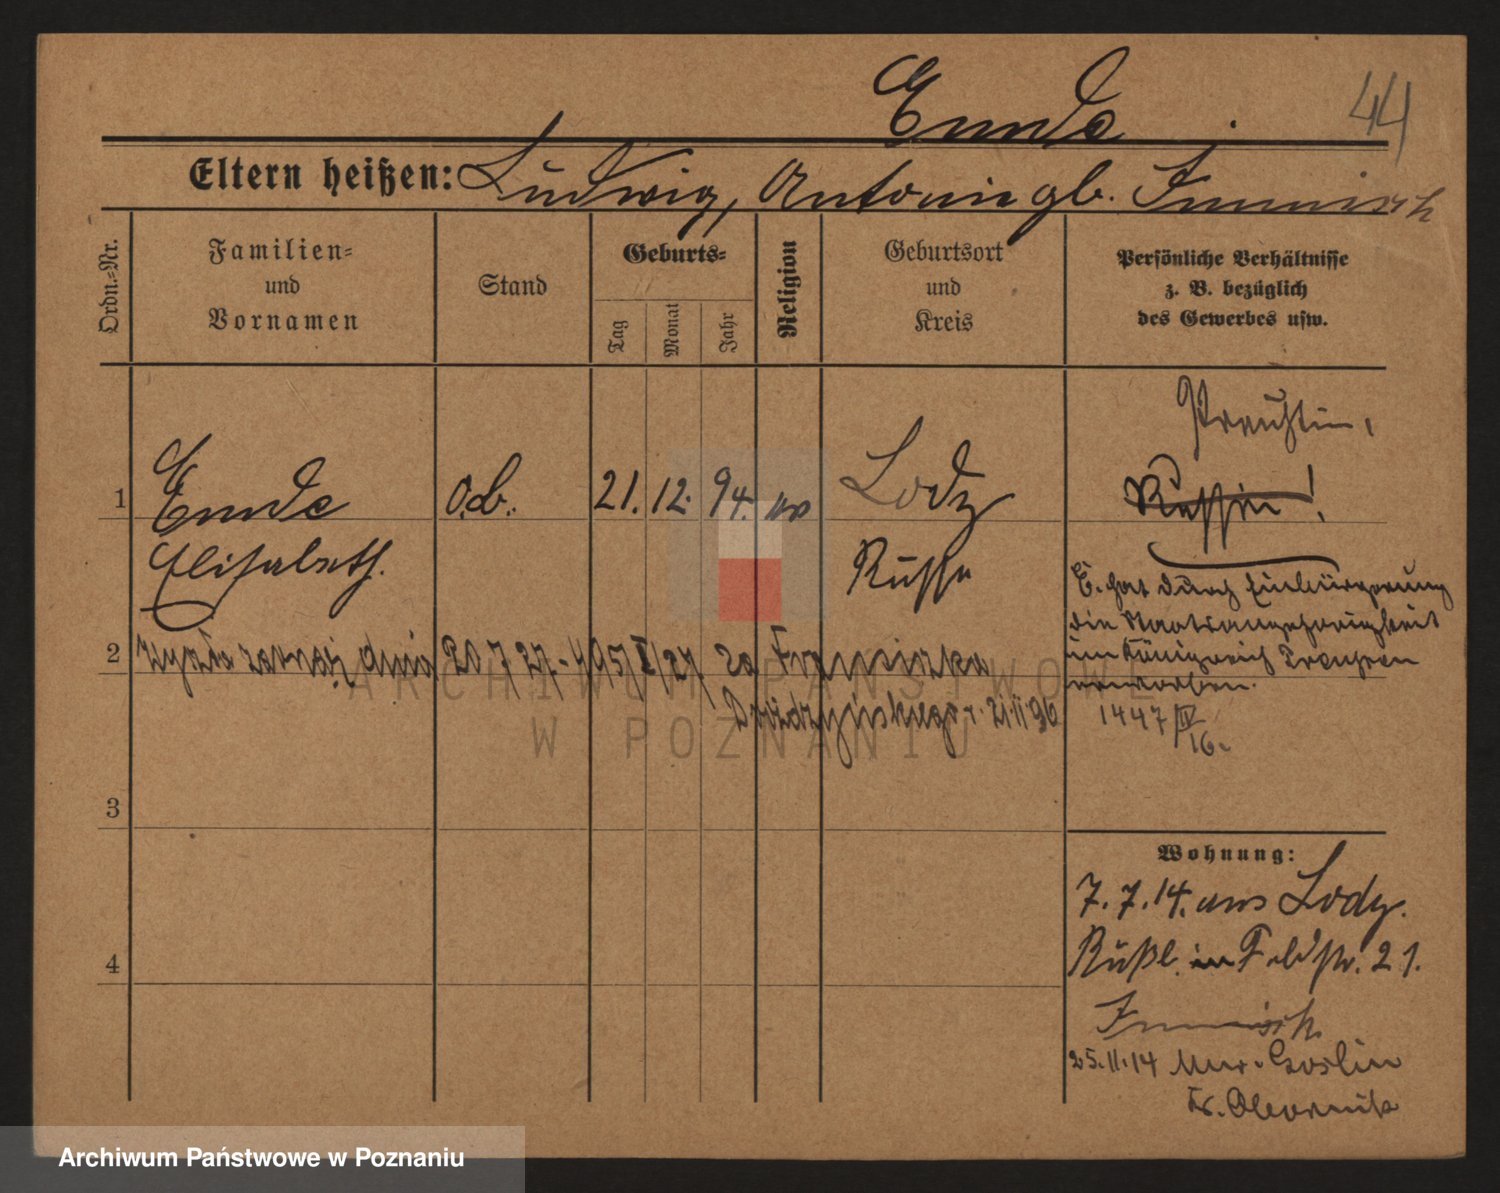 Ende
44
Eltern heißen: Ludwig, Antonie gb. Immisch
Ordn.=Nr.
Familien=
und
Vornamen
Stand
Geburts=
Tag
Monat
Jahr
Religion
Geburtsort
und
Kreis
Persönliche Verhältnisse
z. B. bezüglich
des Gewerbes usw.
Preußin,
1
Ende
o.B.
21.
12.
94.
Lodz
Russin!
Elisabeth.
Russl
E. hat durch Einbürgerung
die Staatsangehörigkeit
im Königreich Preußen
erworben.
1447/IV
16.
2
dnia 20 7 27 za Franciszka
21.11.96
3
Wohnung:
7. 7. 14. aus Lodz.
Rußl. in Feldstr. 21.
4
Immisch
25.11.14 Mur. Goslin
Kr. Obornik
ARCHIWUM PAŃSTWOWE
W POZNANIU
Archiwum Państwowe w Poznaniu